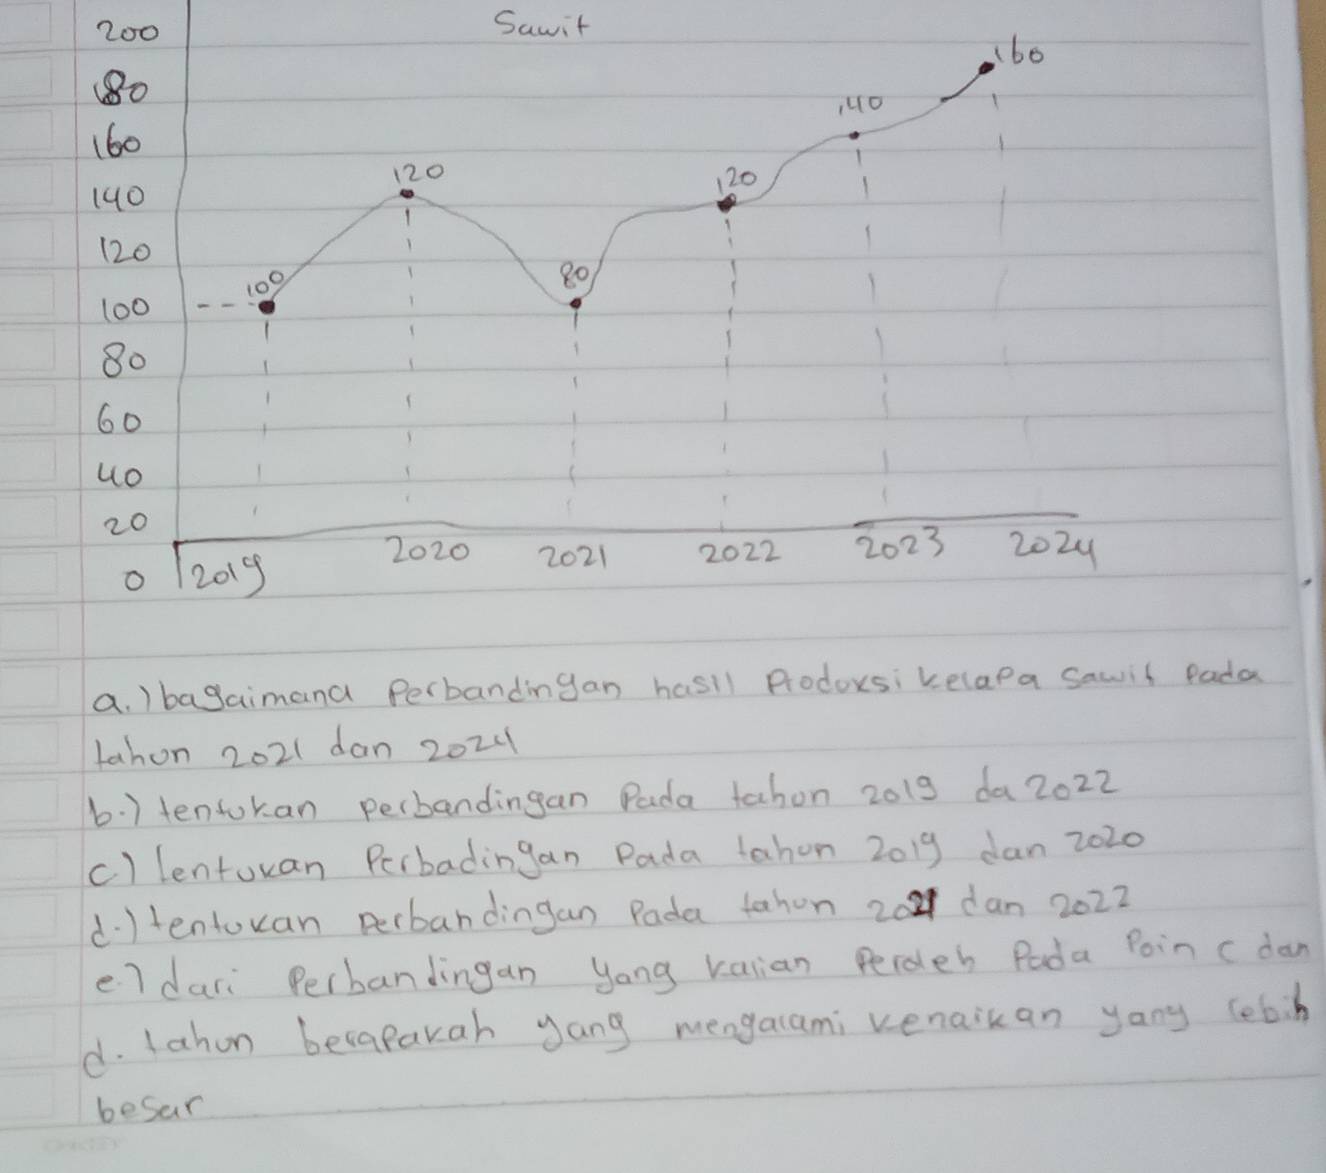 Sawit
200
180
160
140
120
100
80
60
40
20
0
100
120
80
120
140
160
2019
2020
2021
2022
2023
2024
a.) bagaimana Perbandingan hasil Produksi kelapa sawit Pada
tahun 2021 dan 2024
b.) tentukan perbandingan Pada tahun 2019 da 2022
c) tentukan Perbadingan Pada tahun 2019 dan 2020
d.) tentukan perbandingan Pada tahun 2021 dan 2022
e.) dari Perbandingan yang kalian Peroleh Pada Poin c dan
d. tahun berapakah yang mengalami kenaikan yang lebih
besar